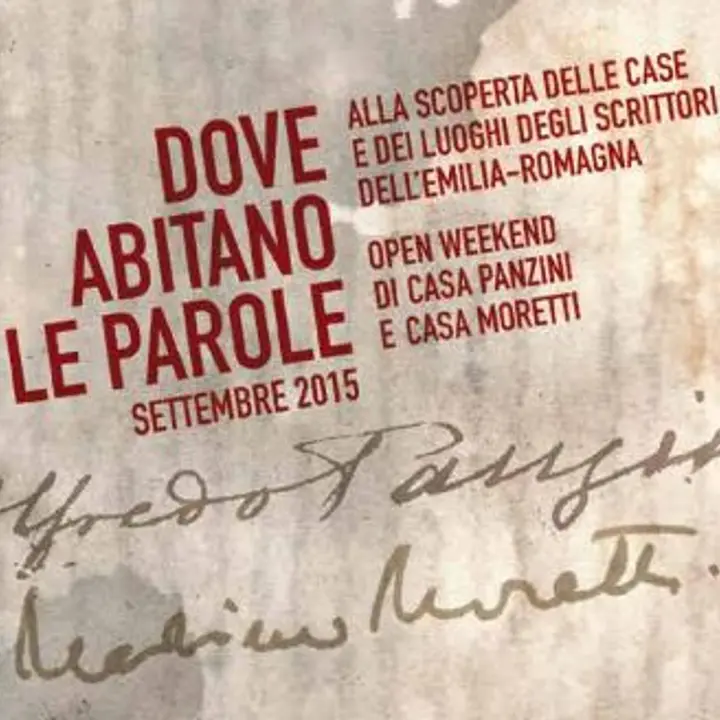 DOVE
ABITANO
LE PAROLE
SETTEMBRE 2015
ALLA SCOPERTA DELLE CASE
E DEI LUOGHI DEGLI SCRITTORI
DELL'EMILIA-ROMAGNA
OPEN WEEKEND
DI CASA PANZINI
E CASA MORETTI
Alfredo Panzini
Marino Moretti.